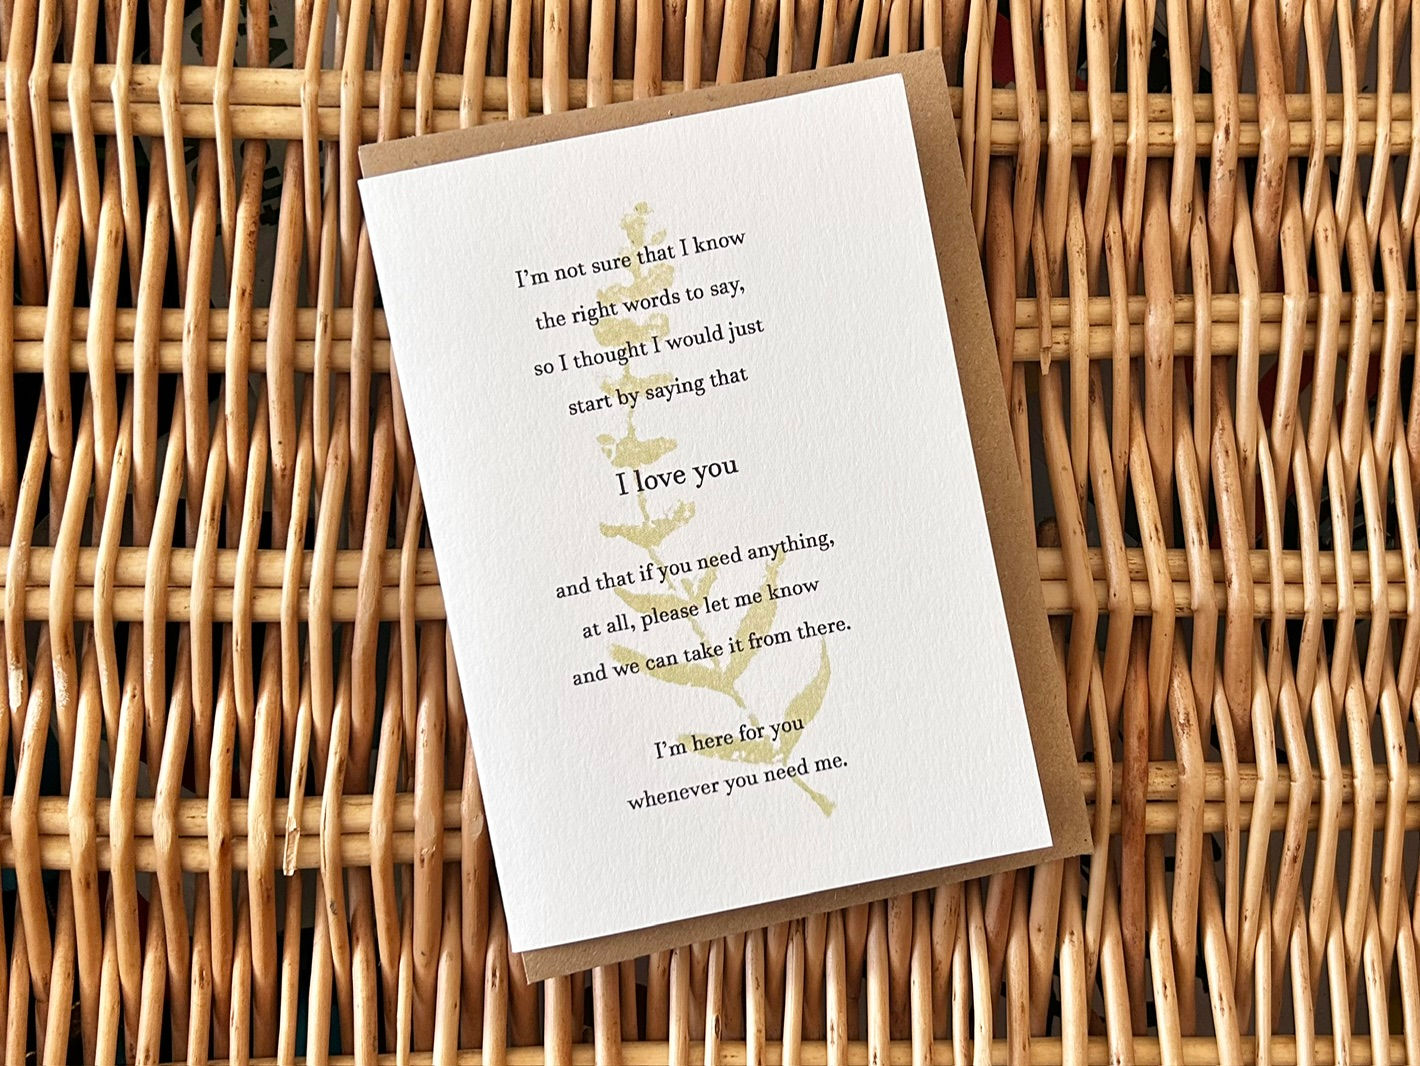 I'm not sure that I know
the right words to say,
so I thought I would just
start by saying that
I love you
and that if you need anything,
at all, please let me know
and we can take it from there.
I'm here for you
whenever you need me.